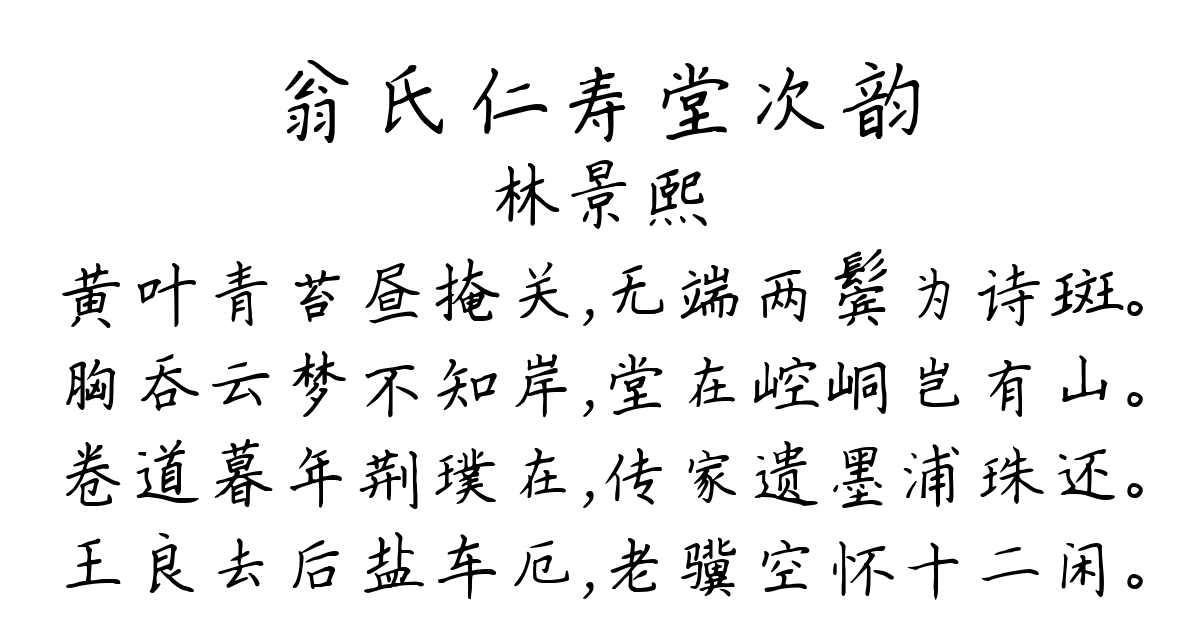 翁氏仁寿堂次韵
林景熙
黄叶青苔昼掩关,无端两鬓为诗斑。
胸吞云梦不知岸,堂在崆峒岂有山。
卷道暮年荆璞在,传家遗墨浦珠还。
王良去后盐车厄,老骥空怀十二闲。